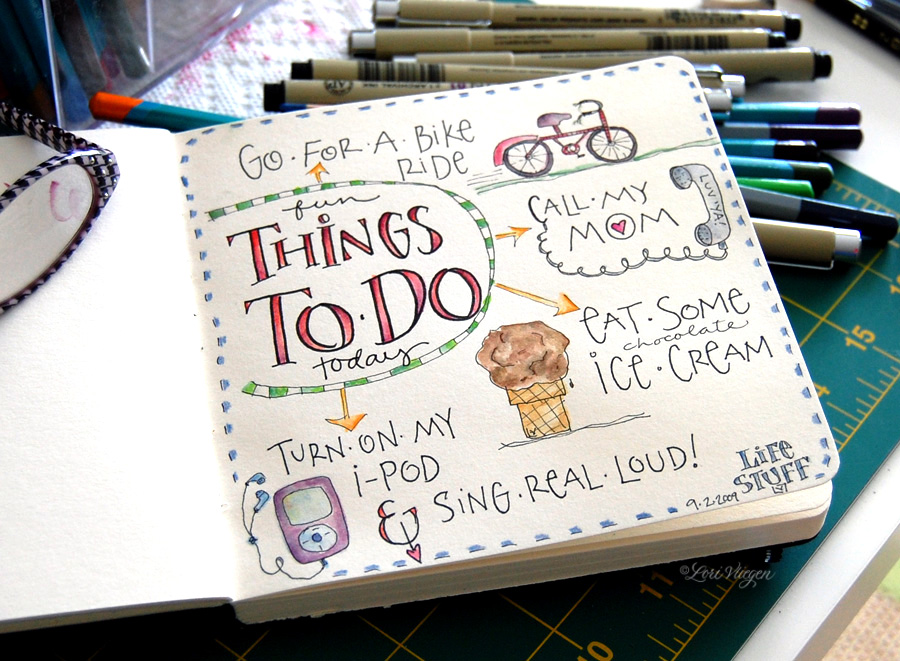 GO·FOR·A·BIKE
RIDE
fun
THINGS
TO·DO
today
CALL·MY
MOM
LUV·YA!
EAT·SOME
chocolate
ICE·CREAM
TURN·ON·MY
i-POD
& SING·REAL·LOUD!
LIFE
STUFF
9·2·2009
©Lori Vliegen
15
11
10